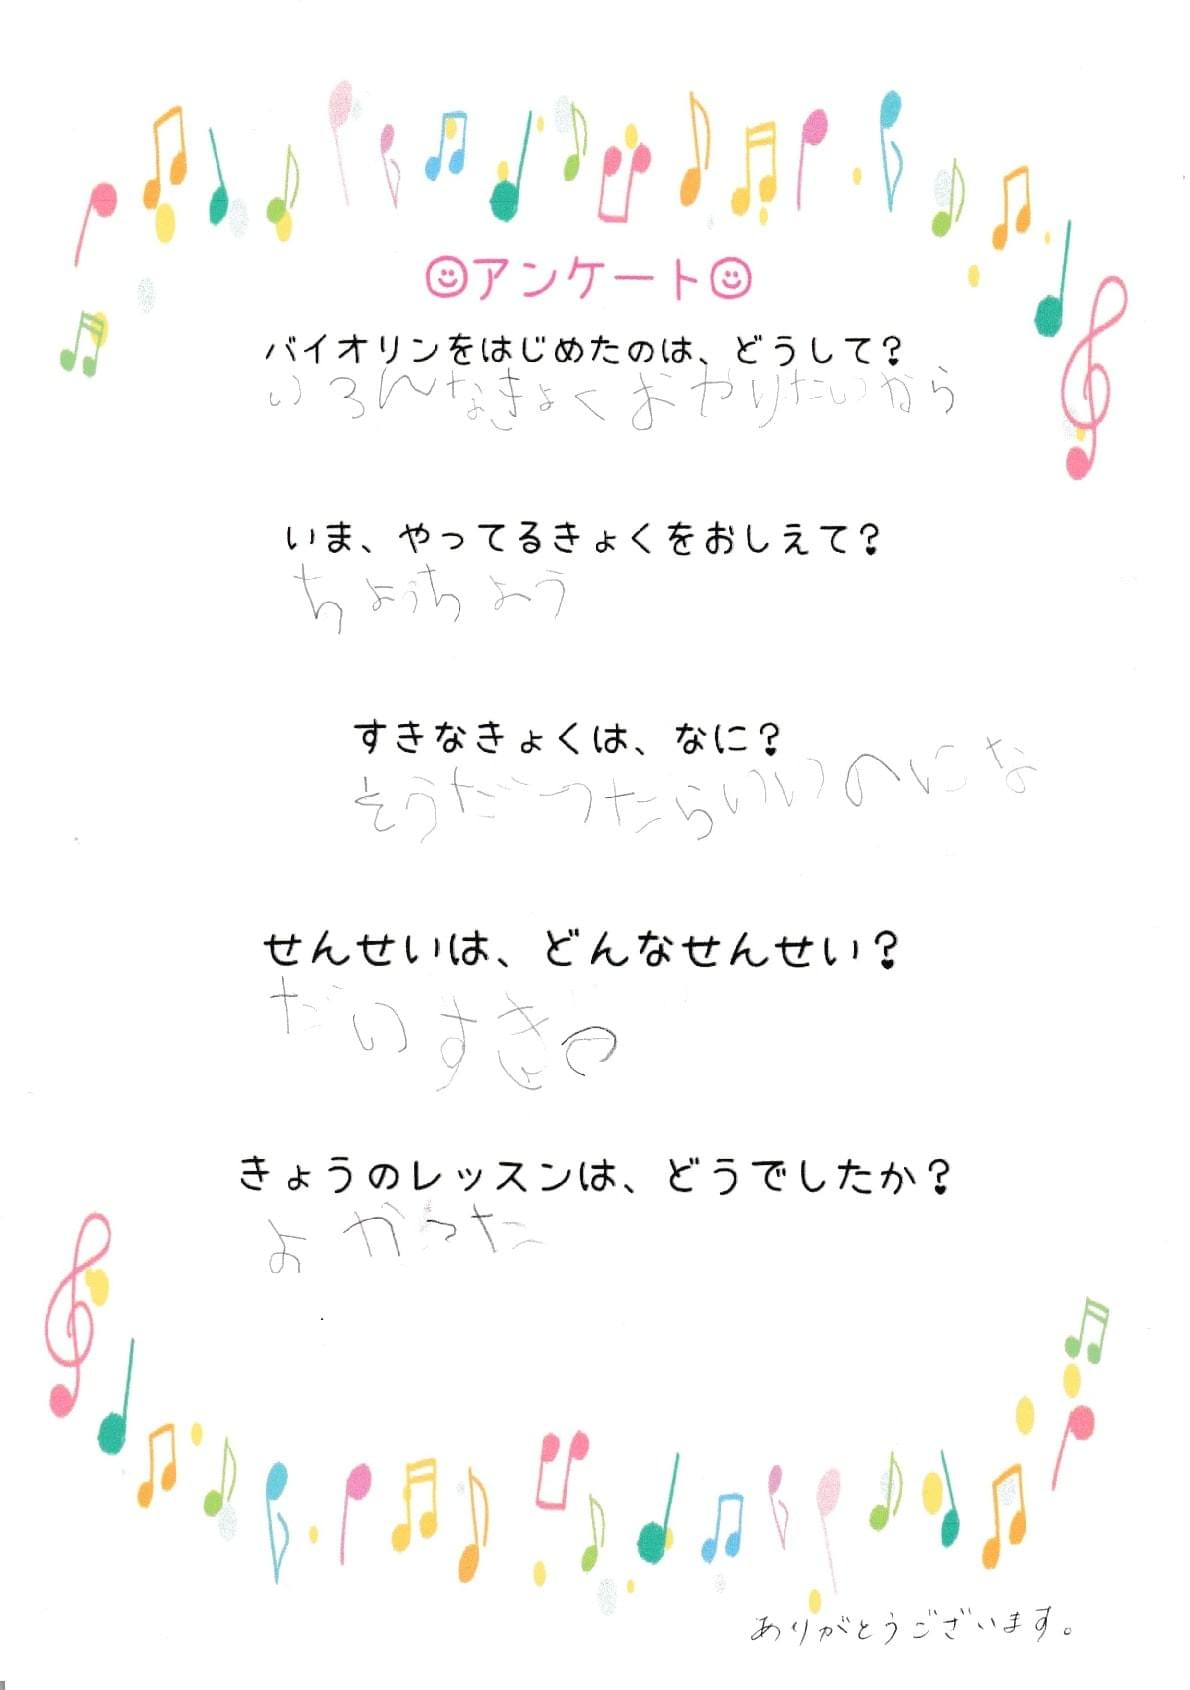 アンケート
バイオリンをはじめたのは、どうして?
いろんなきょくおやりたいから
いま、やってるきょくをおしえて?
ちょうちょう
すきなきょくは、なに?
そうだったらいいのにな
せんせいは、どんなせんせい?
だいすき
きょうのレッスンは、どうでしたか?
よかった
ありがとうございます。